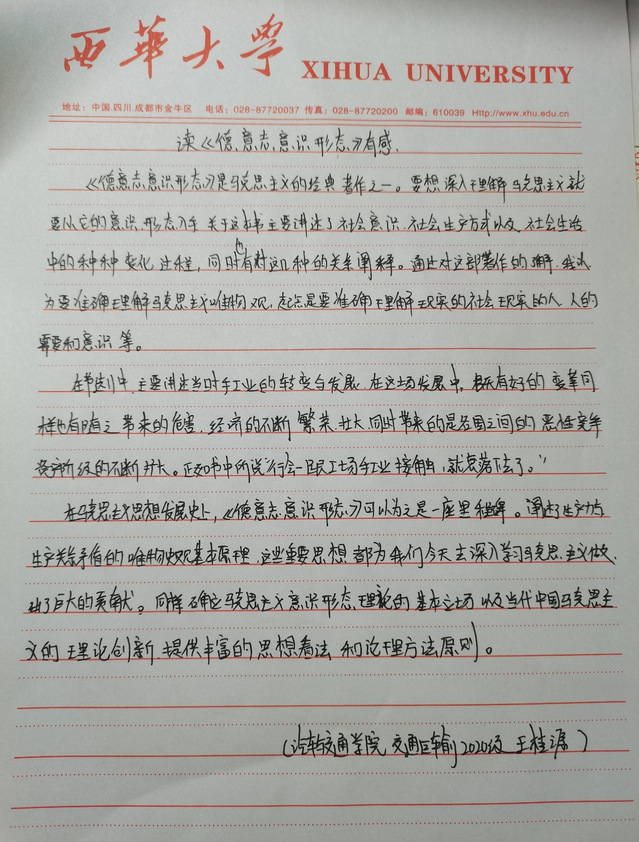 西華大学
XIHUA UNIVERSITY
地址：中国.四川.成都市金牛区 电话：028-87720037 传真：028-87720200 邮编：610039 Http://www.xhu.edu.cn
读《德意志意识形态》有感.
《德意志意识形态》是马克思主义的经典著作之一。要想深入理解马克思主义就
要从它的意识形态入手 关于这本书主要讲述了社会意识.社会生产方式以及 社会生活
中的种种变化过程，同时有对这几种的关系阐释。通过对这部著作的理解，我认
为要准确理解马克思主义唯物观，起点是要准确理解现实的社会现实的人 人的
需要和意识等。
在节选中，主要讲述当时手工业的转变与发展.在这场发展中，既有好的变革同
样也有随之带来的危害.经济的不断繁荣.壮大.同时带来的是各国之间的恶性竞争
阶级的不断壮大。正如书中所说“行会一旦与工场手工业接触，就衰落下去了。”
在马克思主义思想发展史上，《德意志意识形态》可以认为是一座里程碑。阐述了生产力与
生产关系矛盾的唯物史观基本原理.这些重要思想都为我们今天去深入学习马克思主义做
出了巨大的贡献。同样 确立马克思主义意识形态理论的基本立场以及当代中国马克思主
义的理论创新.提供丰富的思想看法和论理方法原则。
(汽车与交通学院 交通运输2020级 王桂源)